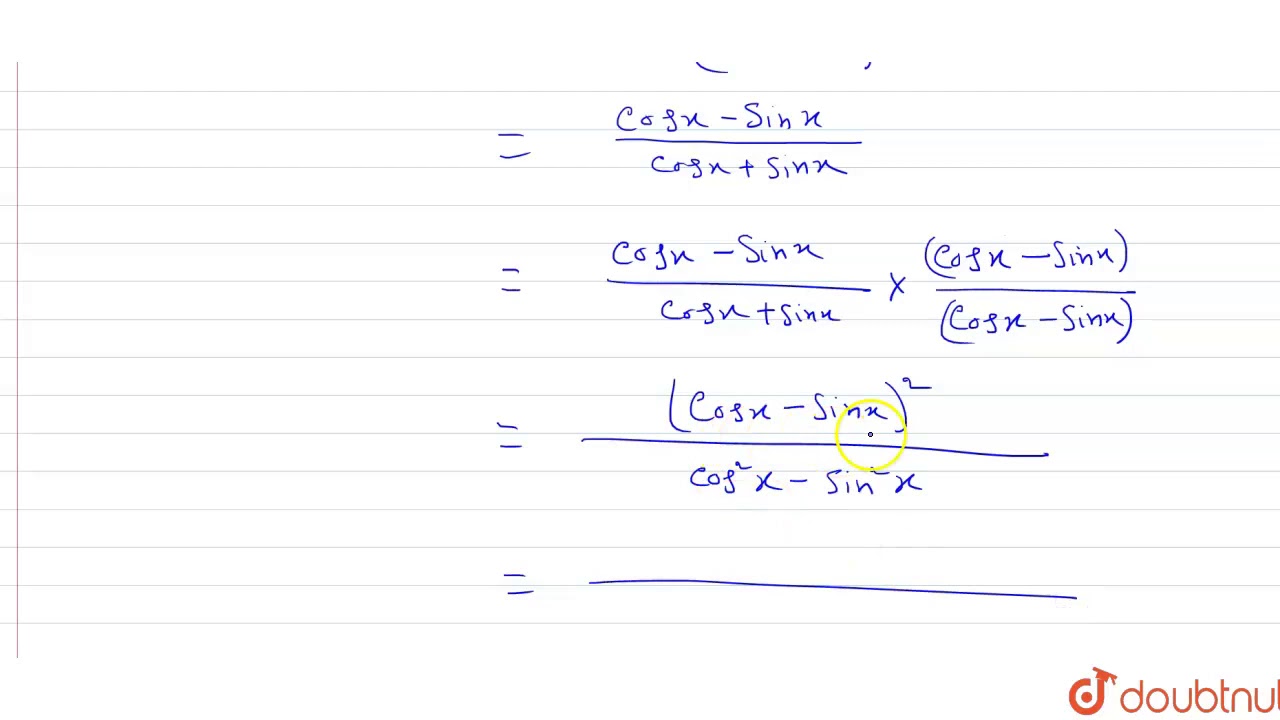 = (cosx - sinx)/(cosx + sinx)
= (cosx - sinx)/(cosx + sinx) × (cosx - sinx)/(cosx - sinx)
= (cosx - sinx)²/(cos²x - sin²x)
=
doubtnut